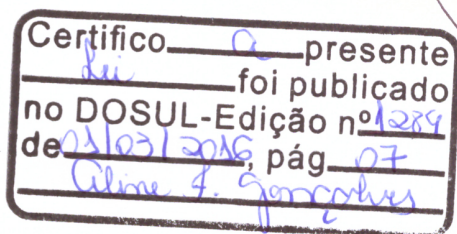 Certifico a presente
Lei foi publicado
no DOSUL-Edição nº 1289
de 01/03/2016, pág 07
Aline F. Gonçalves